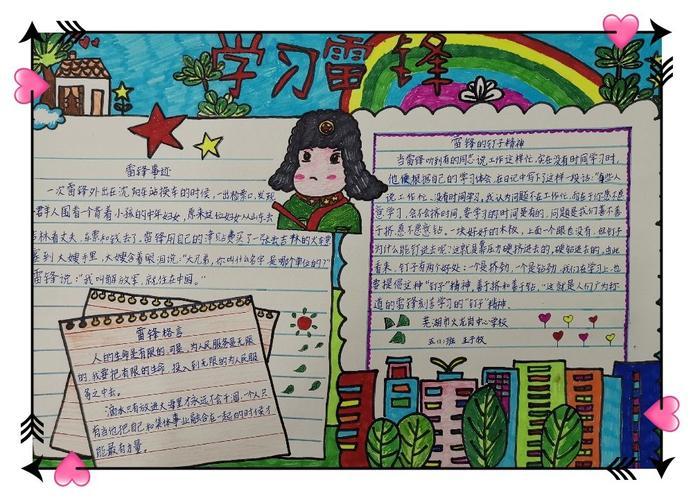 学习雷锋
雷锋事迹
一次雷锋外出在沈阳车站换车的时候，一出检票口，发现
群人围着一个背着小孩的中年妇女，原来这位妇女从山东去
吉林看丈夫，车票和钱丢了。雷锋用自己的津贴费买了一张去吉林的火车票
塞到大嫂手里，大嫂含着眼泪说：“大兄弟，你叫什么名字，是哪个单位的？”
雷锋说：“我叫解放军，就住在中国。”
雷锋格言
人的生命是有限的，可是，为人民服务是无限
的，我要把有限的生命，投入到无限的为人民服
务之中去。
滴水只有放进大海里才永远不会干涸，一个人只
有当他把自己和集体事业融合在一起的时候才
能最有力量。
雷锋的钉子精神
当雷锋听到有的同志说工作这样忙，实在没有时间学习时，
他便根据自己的学习体会，在日记中写下这样一段话：“有些人
说工作忙、没有时间学习，我认为问题不在工作忙，而在于你愿不愿
意学习，会不会挤时间。要学习的时间是有的，问题是我们善不善
于挤，愿不愿意钻。一块好好的木板，上面一个眼也没有，但钉子
为什么能钉进去呢？这就是靠压力硬挤进去的，硬钻进去的，由此
看来，钉子有两个好处：一个是挤劲，一个是钻劲。我们在学习上，也
要提倡这种“钉子”精神，善于挤和善于钻。”这就是人们广为称
道的雷锋刻苦学习的“钉子”精神。
芜湖市火龙岗中心学校